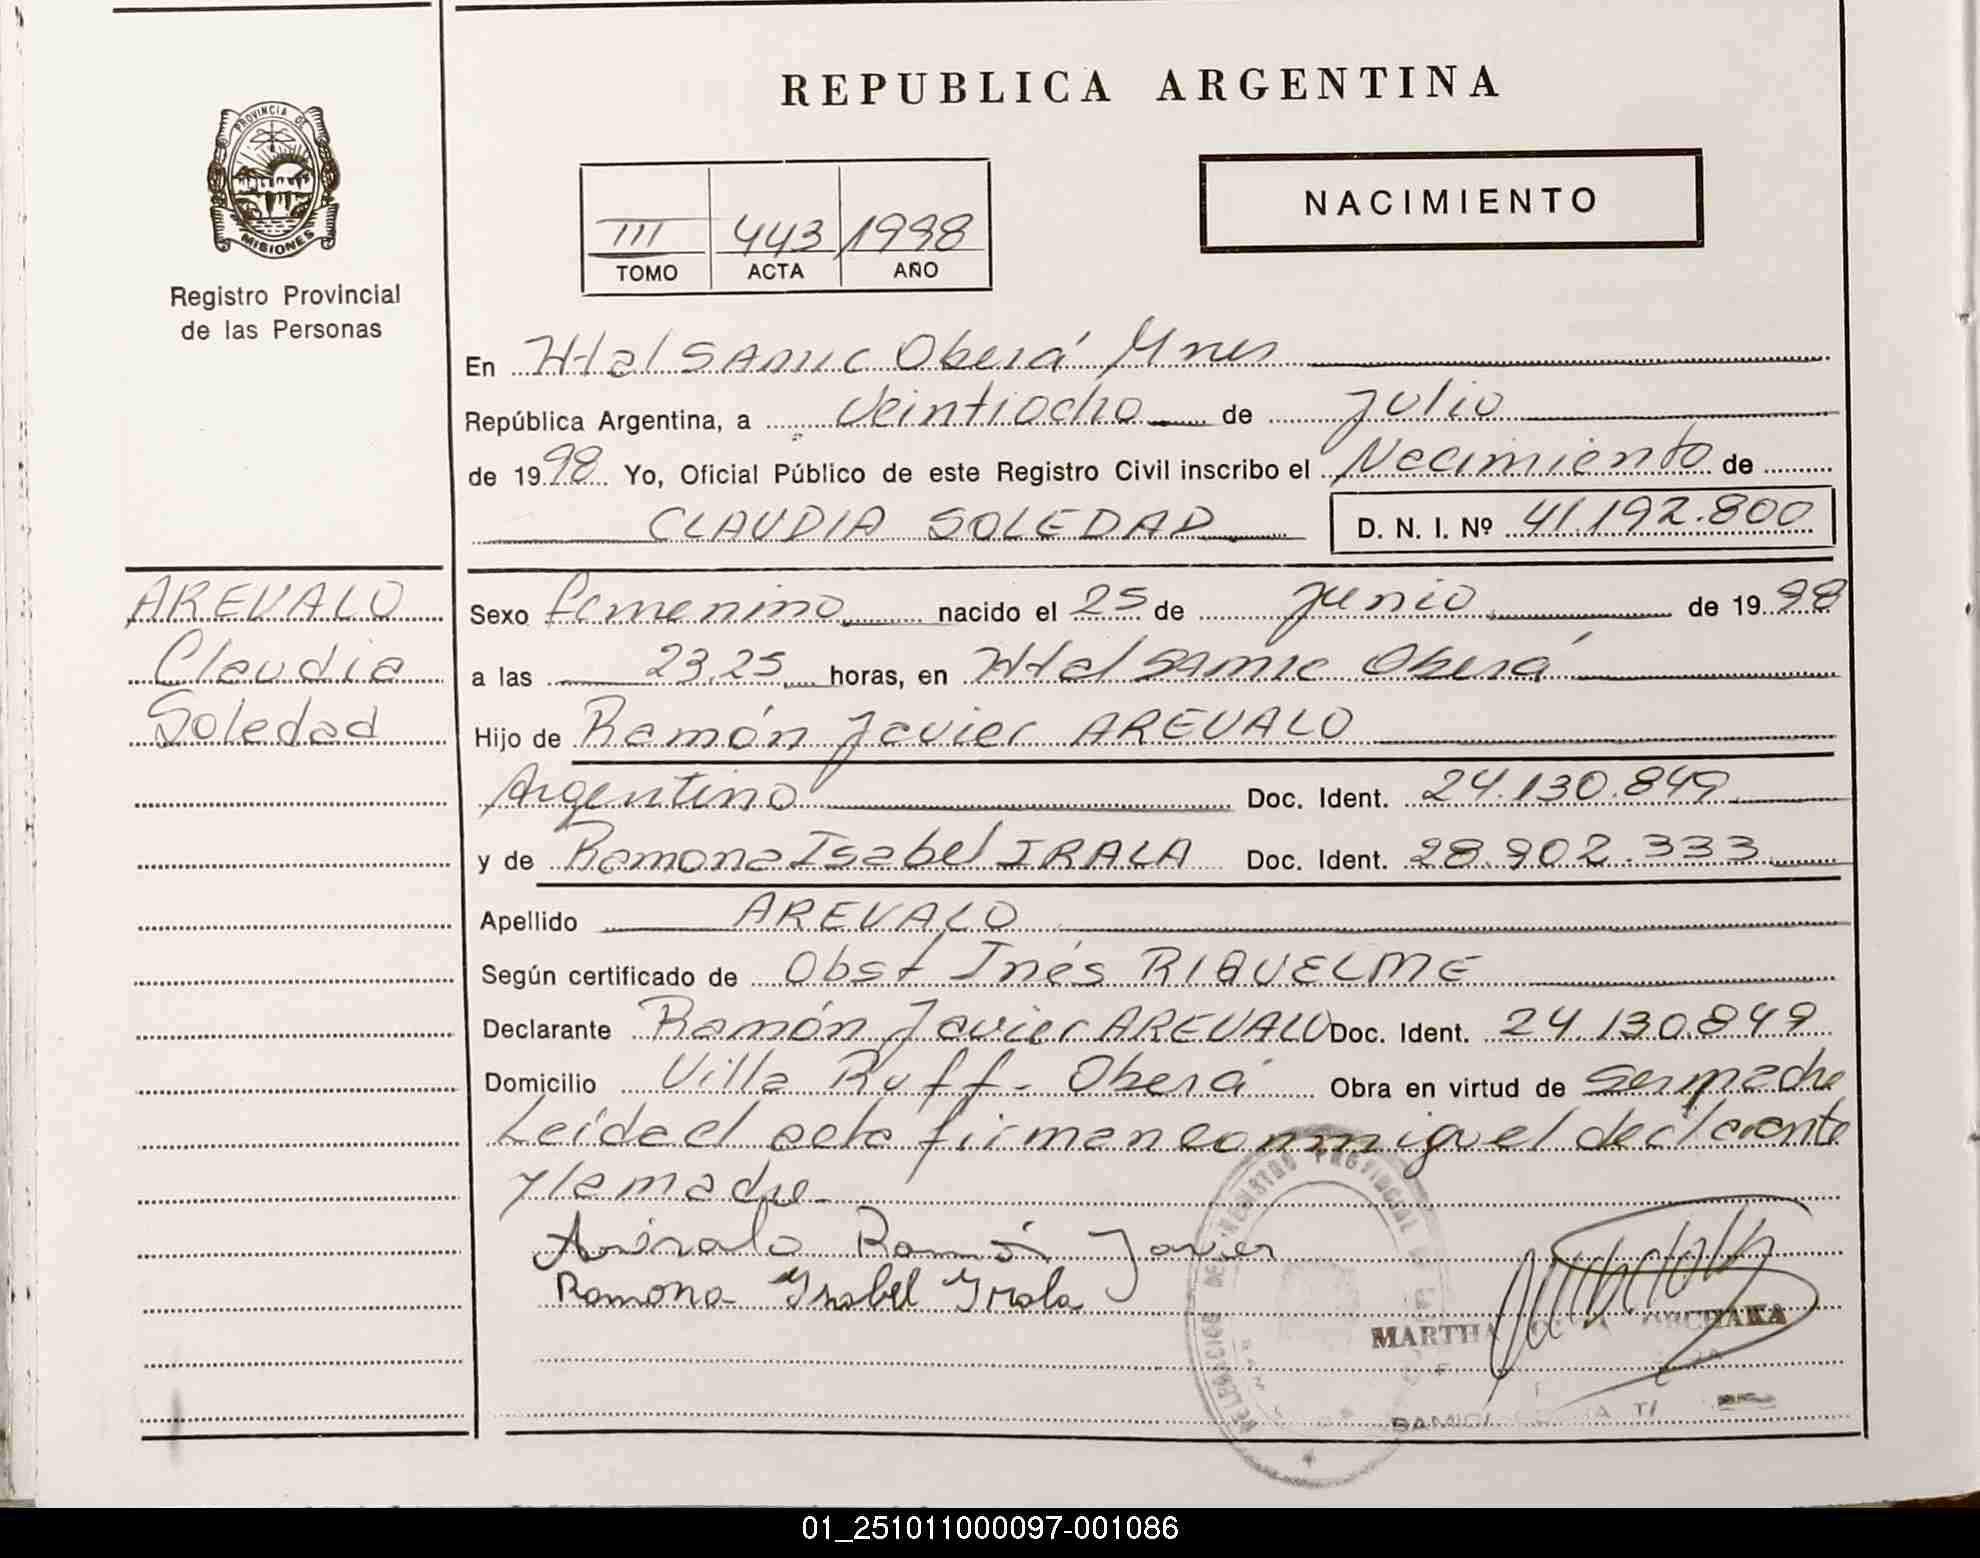 REPUBLICA ARGENTINA
PROVINCIA DE
MISIONES
Registro Provincial
de las Personas
NACIMIENTO
III 443 1998
TOMO ACTA AÑO
En Htal SAMIC Oberá Mnes
República Argentina, a veintiocho de Julio
de 1998 Yo, Oficial Público de este Registro Civil inscribo el Nacimiento de
CLAUDIA SOLEDAD D. N. I. Nº 41.192.800
AREVALO
Claudia
Soledad
Sexo femenino nacido el 25 de Junio de 1998
a las 23,25 horas, en Htal SAMIC Oberá
Hijo de Ramón Javier AREVALO
Argentino Doc. Ident. 24.130.849
y de Ramona Isabel IRALA Doc. Ident. 28.902.333
Apellido AREVALO
Según certificado de Obst Inés RIQUELME
Declarante Ramón Javier AREVALO Doc. Ident. 24.130.849
Domicilio Villa Ruff - Oberá Obra en virtud de ser madre
Leída el acta firman conmigo el declarante
y la madre.
Ramón Javier
Ramona Isabel Irala
DELEGACION DE REGISTRO PROVINCIAL
MARTHA
01_251011000097-001086